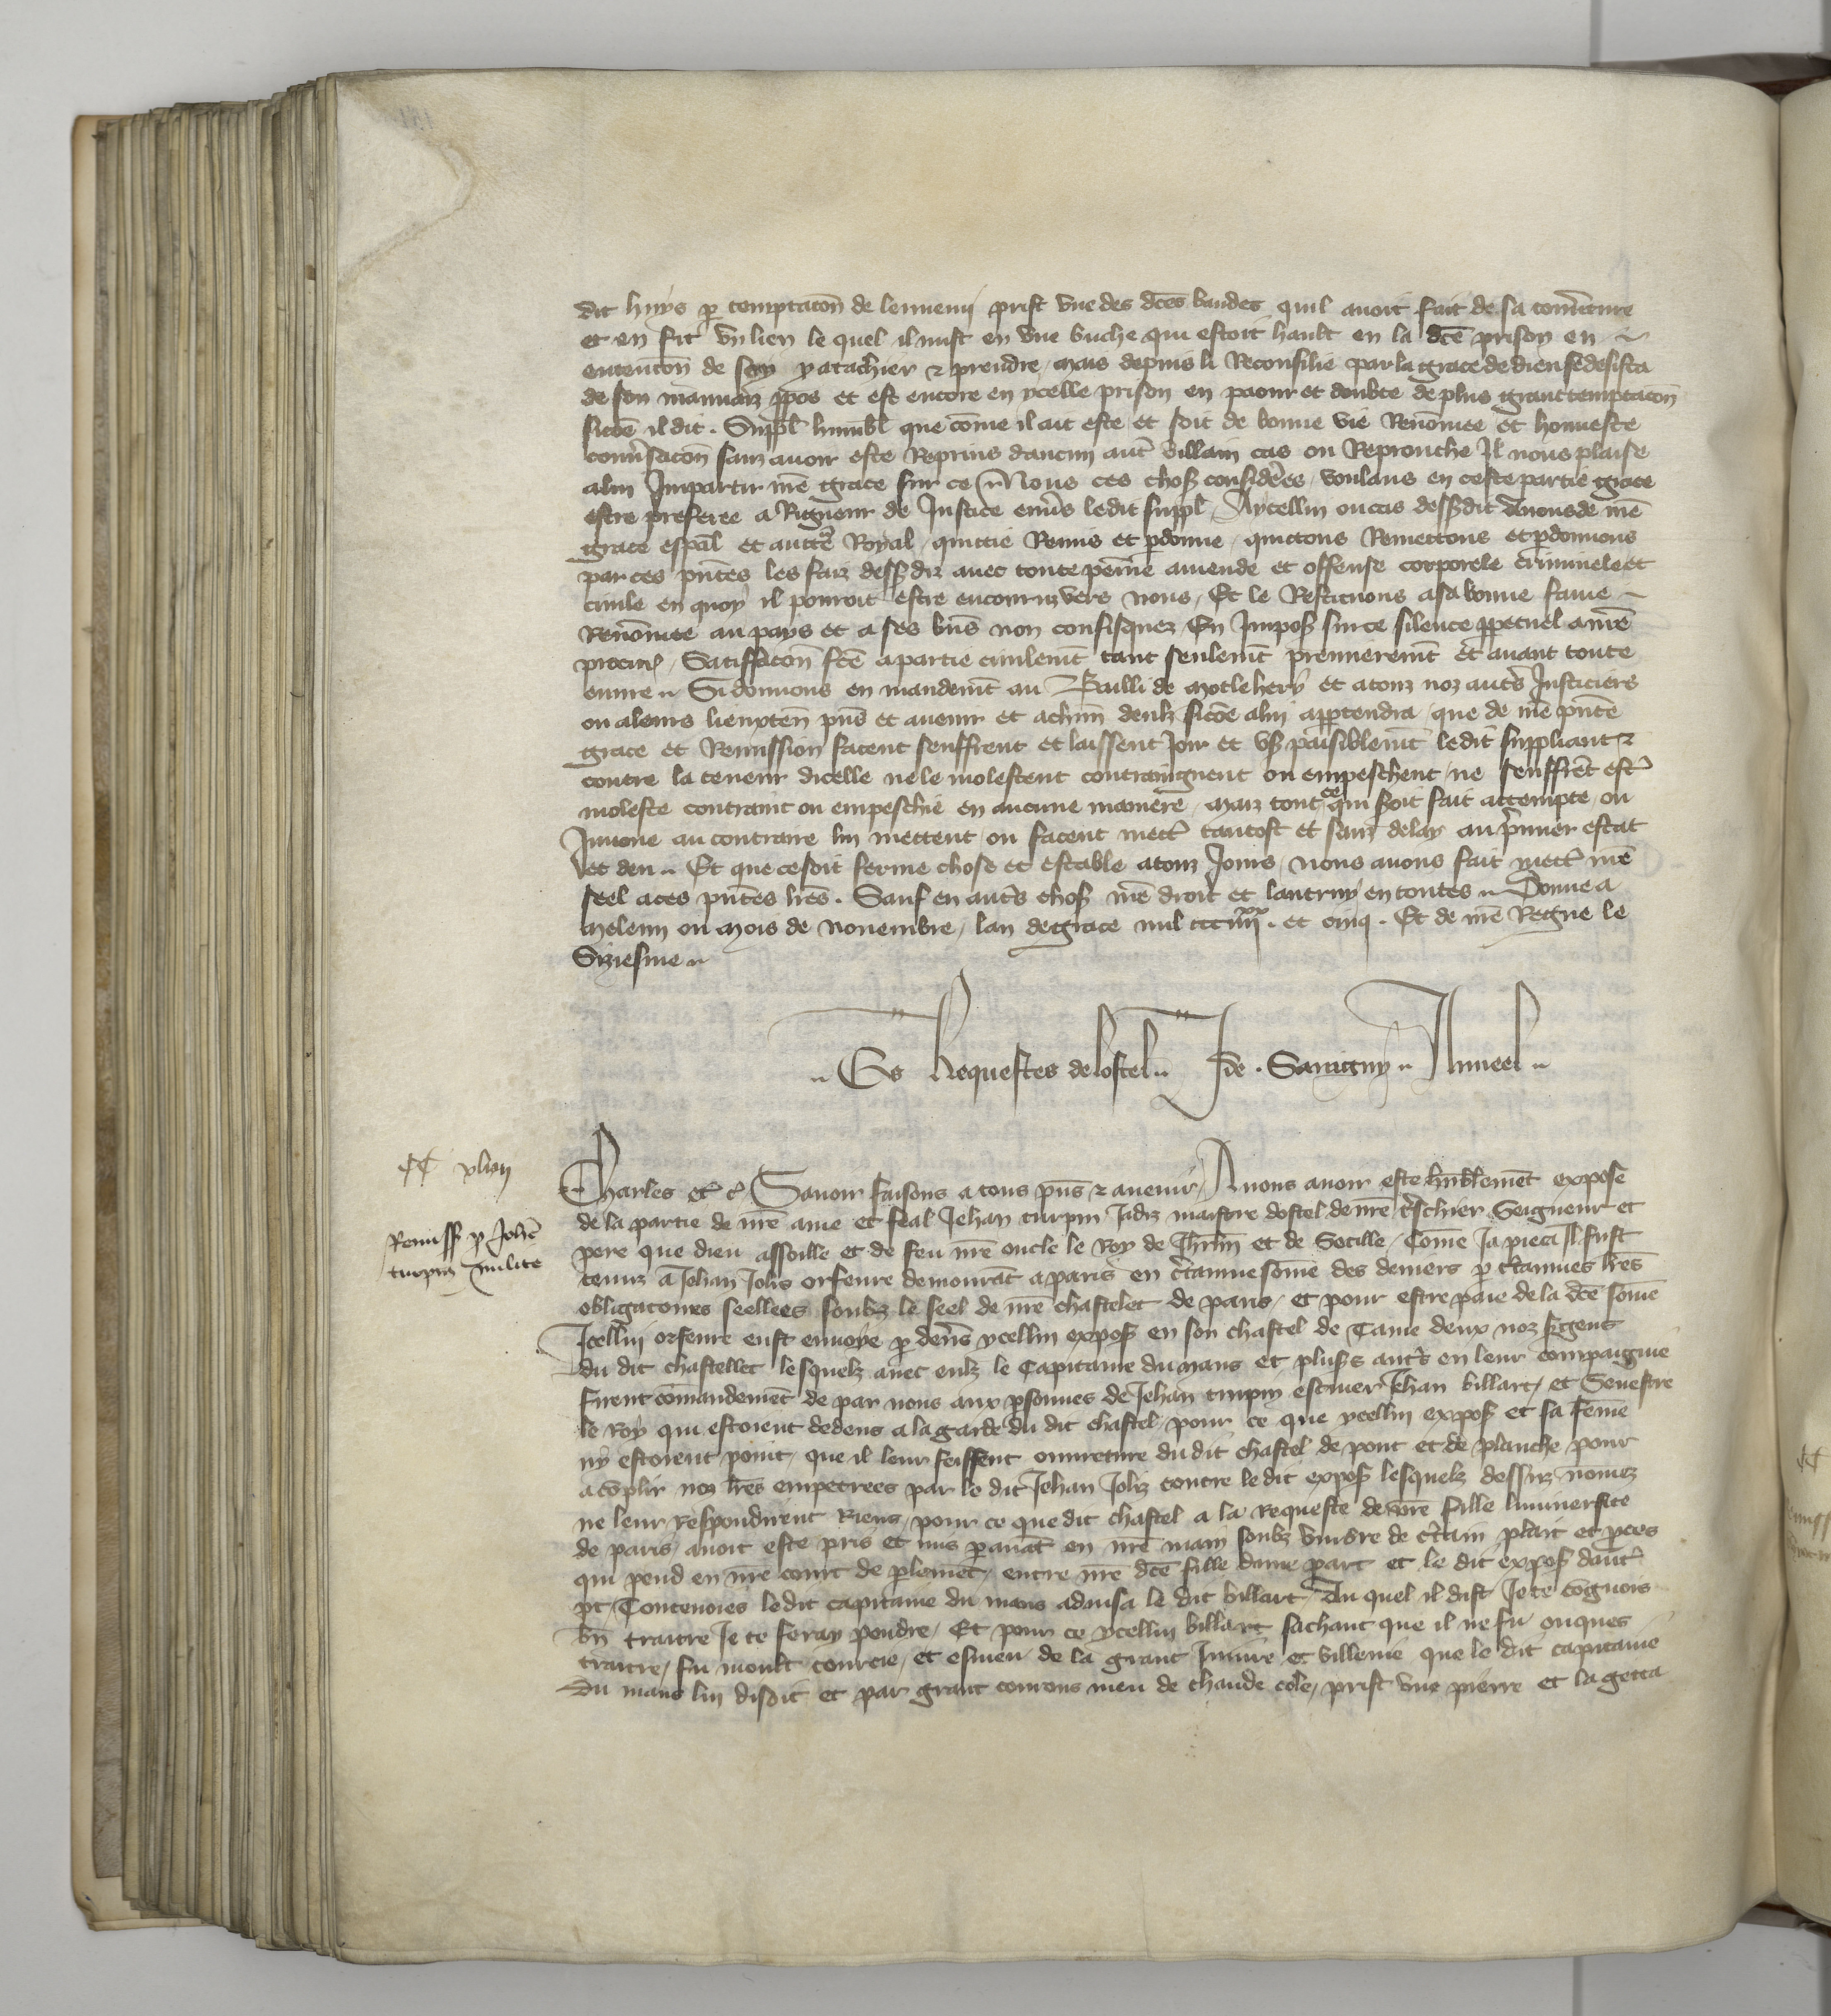 dit huys p temptacōn de lennemi prist vne des dc̄es bandes quil auoit fait de sa couu̾ture
et en fit vn lien le quel il mist en vne buche qui estoit hault en la dc̄e prison en
entencōn de soy y atachier ⁊ prendre, mais depuis li Reconsilie par la grace de dieu se desista
de son mauuaiz ppos et est encore en ycelle prison en paour et doubte de plus grant temptacōn
sicōe il dit. Suppl̄ humbl̄ que cōme il ait este et soit de bonne vie Renōmee et honneste
conu̾sacōn sanz auoir este Reprins daucun aut̾ villain cas ou Reprouche Il nous plaise
a lui Impartir nr̄e grace sur ce Nous ces choses consider̾es, voulans en ceste partie grace
estre preferee a Rigueur de Justice enu̾s ledit suppl̄, A ycellui ou cas dessusdit Auons de nr̄e
grace esp̄al et auctē Royal, quictie Remis et pdonne, quictons Remectons et pdonnons
par ces pn̄tes les faiz dessusdiz auec toute peinne amende et offense corporele criminele et
ciuile en quoy il pourroit estre encouruz vers nous, Et le Restituons a sa bonne fame
Renōmee au pays et a ses biēs non confisquez En Imposant sur ce silence ppetuel a nr̄e
procur̾, Satisfacōn fc̄e a partie ciuilemt̄ tant seulemt̄ premieremt̄ et auant toute
euure Si donnons en mandemt̄ au Bailli de Motlehery et a touz noz aut̾s Justiciers
ou a leurs lieuxten̄ pn̄s et auenir et a chun̄ deulz sicōe a lui appartendra, que de nr̄e pn̄te
grace et Remission facent seuffrent et laissent Joir et user paisiblemt̄ ledit suppliant ⁊
contre la teneur dicelle ne le molestent contraingnent ou empeschent, ne seuffrēt est̾
moleste contraint ou empeschie en aucune maniere, maiz tout ce qui seroit fait attempte, ou
Innoue au contraire lui mettent ou facent mett̾ tantost et sanz delay au p̾mier estat
et deu Et que ce soit ferme chose et estable a touz Jours, nous auons fait mett̾ nr̄e
seel a ces pn̄tes lr̄es. Sauf en aut̾s choses nr̄e droit et lautruy en toutes Donne a
Meleun ou mois de nouembre, lan de grace mil ccciiijˣˣ. et cinq. Et de nr̄e Regne le
Siziesme
Es Requestes de lostel J de. Sanitguy
Charles et c̾, Sauoir faisons a tous pn̄s ⁊ auenir, A nous auoir este humblemēt expose
de la partie de nr̄e ame et feal Jehan turpin Jadiz maistre dostel de nr̄e tr̾schier Seigneur et
pere que dieu assoille et de feu nr̄e oncle le Roy de Jhrlm̄ et de Secille, Cōme Ja pieca Il fust
tenuz a Jehan Jolis orfeure demourāt a paris en c̾tainne sōme des deniers p c̾tainnes lr̄es
obligatoires seellees soubz le seel de nr̄e chastelet de paris, et pour estre paie de la dc̄e sōme
Icellui orfeure eust enuoye p deu̾s ycellui exposant en son chastel de Came deux noz s̾gens
du dit chastellet lesquelz auec eulz le Capitaine du mans et pluss̾ aut̾s en leur compaignie
firent cōmandemēt de par nous aux psonnes de Jehan turpin escuier Jehan billart, et Seuestre
le Roy qui estoient dedens a la garde du dit chastel, pour ce que ycellui exposant et sa fēme
ny estoient point, que il leur feissent ouureture du dit chastel de pont et de planche pour
acōplir noz lr̄es empetrees par le dit Jehan Joliz contre le dit exposant lesquelz dessuz nōmez
ne leur respondirent Riens, pour ce que dit chastel a la requeste de nr̄e fille luniuersite
de paris, auoit este pris et mis p auāt en nr̄e main soubz vmbre de c̾tain plait et pces
qui pend en nr̄e court de plemēt, entre nr̄e dc̄e fille dune part et le dit exposant daut̾
pt, Contenoies ledit capitaine du mans aduisa le dit billart, Au quel il dist Je te cōgnois
bn̄ traitre Je te feray pendre, Et pour ce ycellui billart sachant que il ne fu onques
traitre, fu moult courcie, et esmeu de la grant Iniure et villenie que le dit capitaine
du mans lui disoit et par grant courous meu de chaude cole, prist vne pierre et la getta
Remiss̾ p Joh̄e
turpin milite